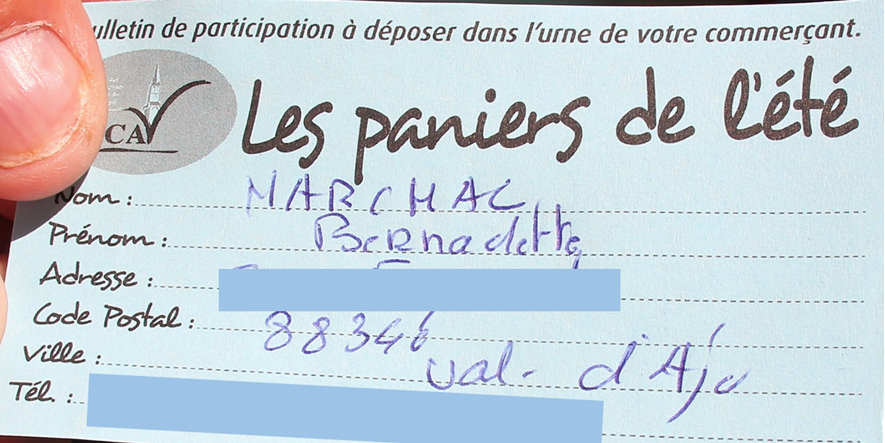 ulletin de participation à déposer dans l'urne de votre commerçant.
CAV
Les paniers de l'été
Nom : MARCHAL
Prénom : Bernadette
Adresse :
Code Postal : 88340
Ville : Val- d'Ajol
Tél. :